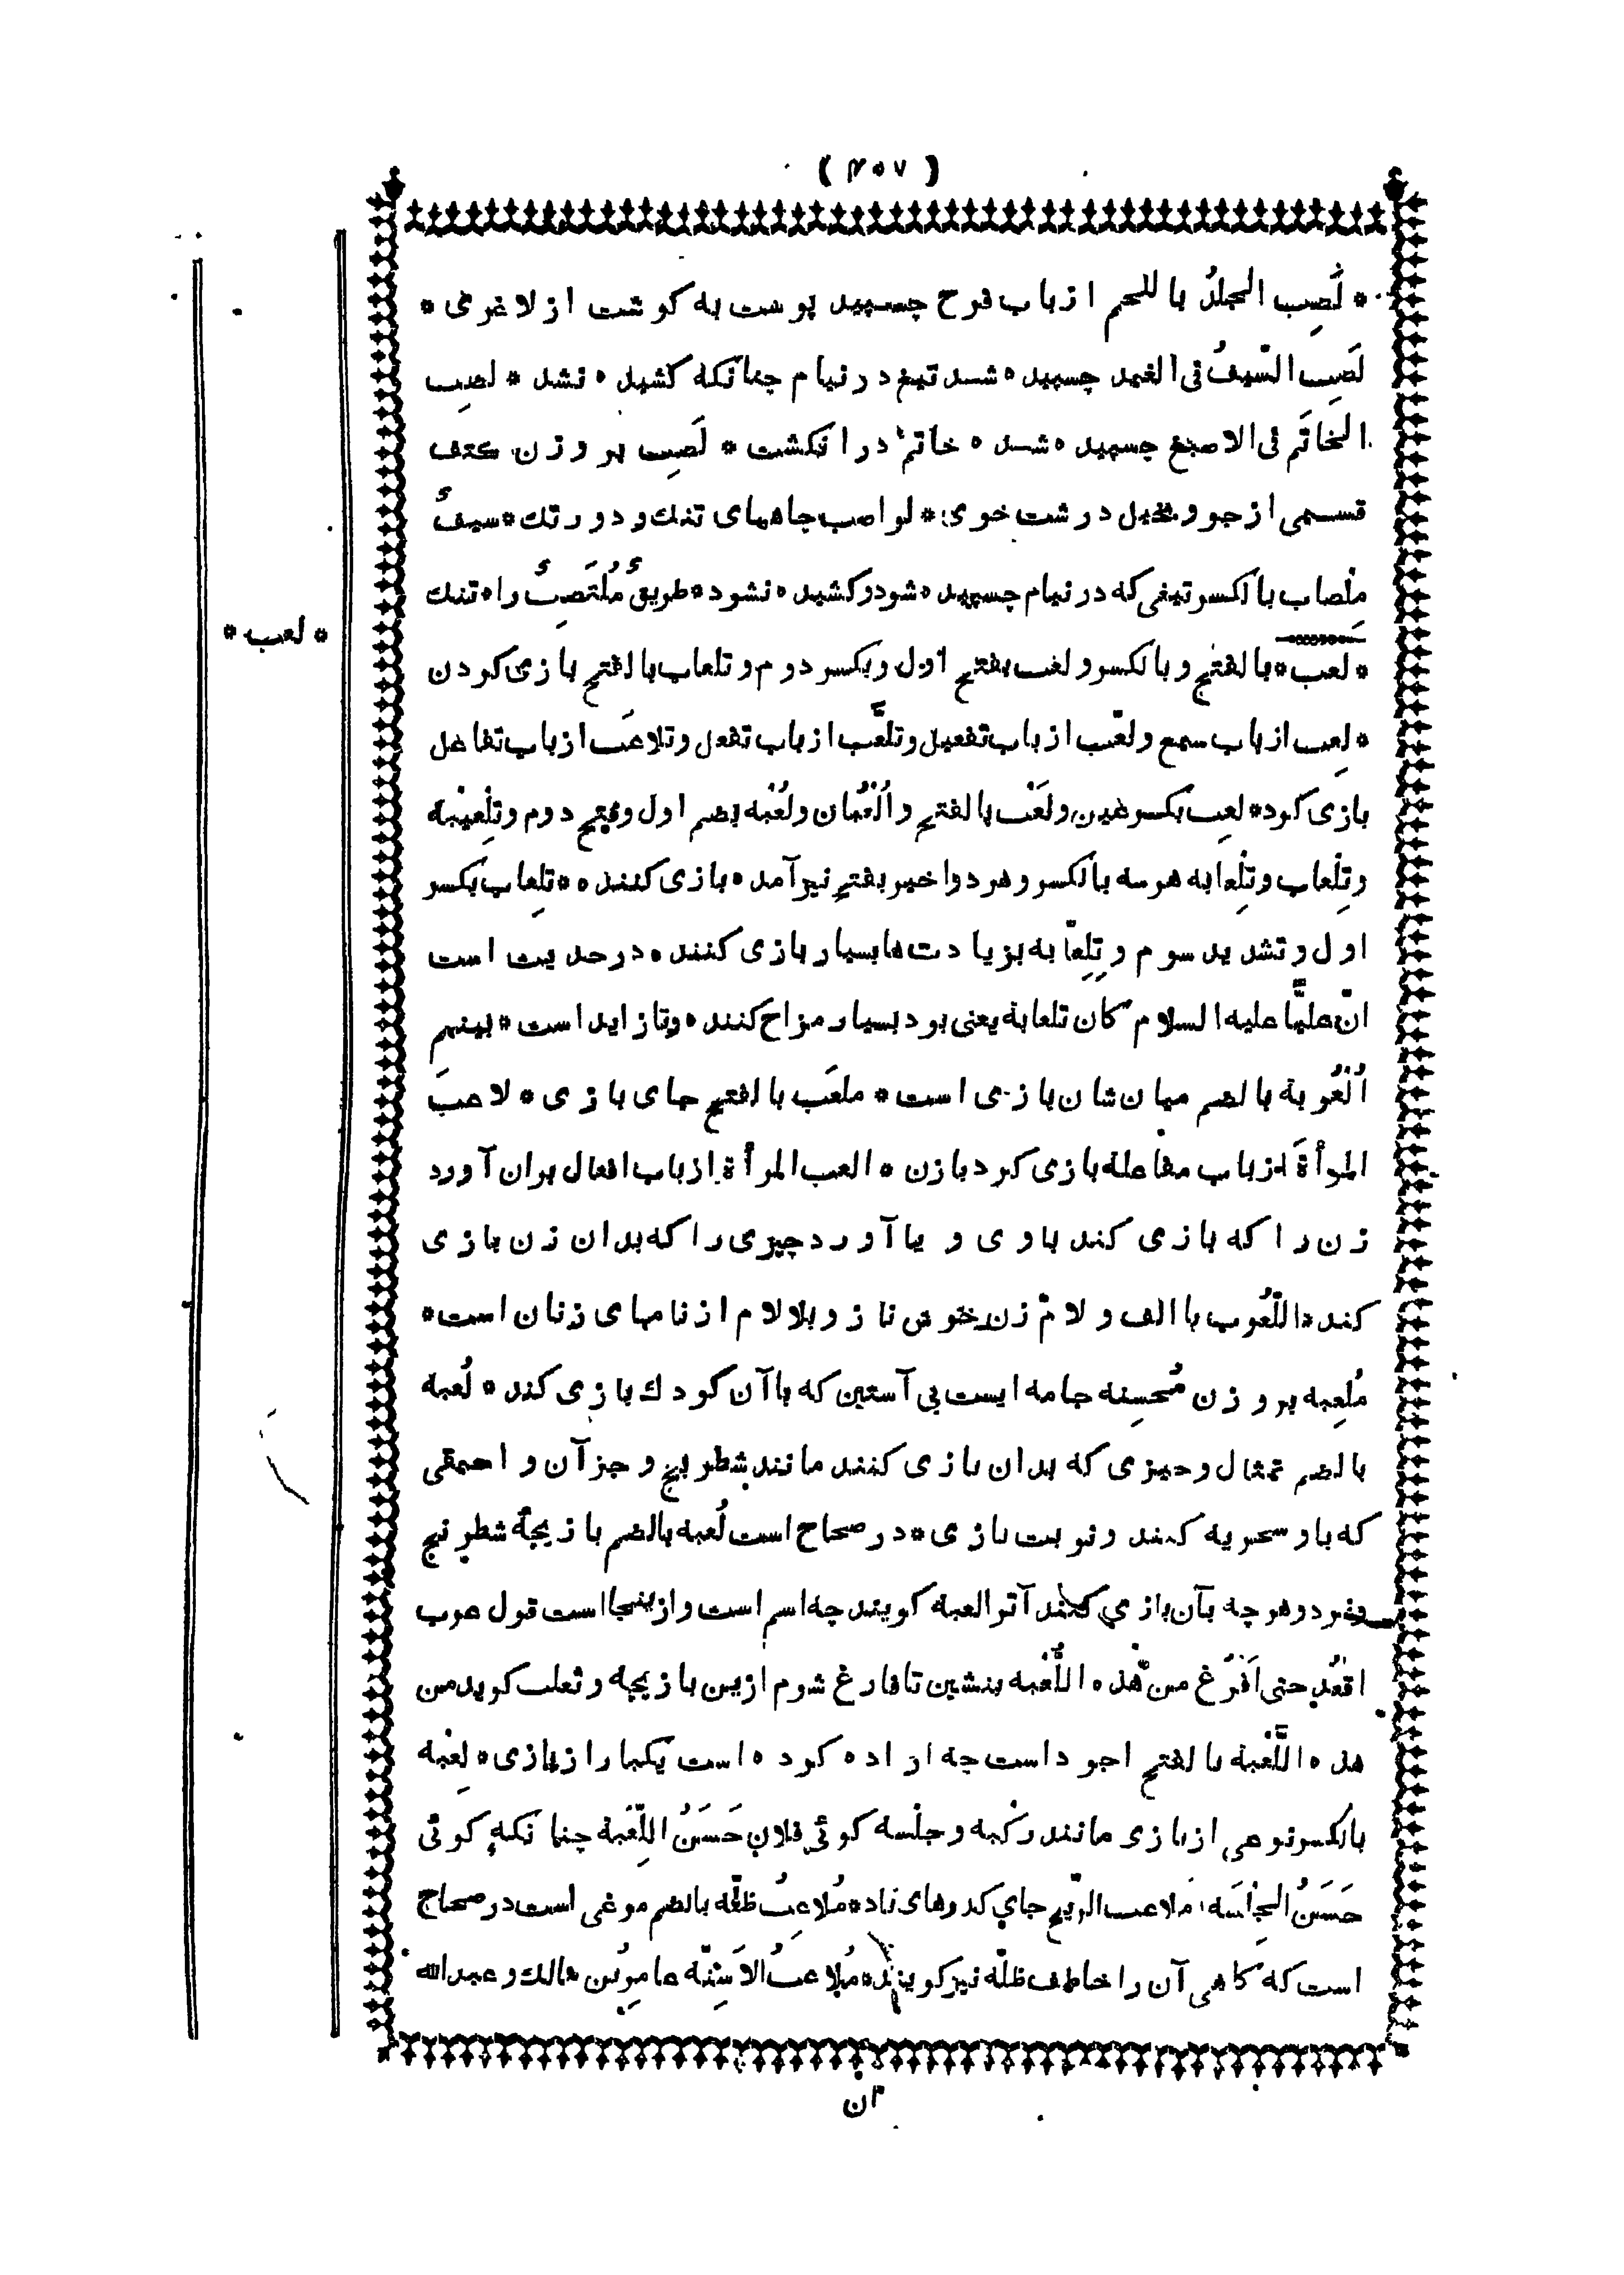 ( ۴۰۷ )
* لَصِب الجلدُ باللحم از باب فرح چسپید پوست به گوشت از لاغری *
لَصِب السّیفُ فی الغمد چسپیده شد تیغ در نیام چنانکه کشیده نشد * لصِب
الخاتَم فی الاصبع چسپیده شده خاتم در انگشت * لَصِب بر وزن کتف
قسمی از جو و بخیل درشت خوی * لواصب چاههای تنك و دور تك * سیفٌ
مِلْصاب بالکسر تیغی که در نیام چسپیده شود و کشیده نشود * طریقٌ مُلْتَصِبٌ راه تنك
* لعب * بالفتح و بالکسر و لعب بفتح اول و بکسر دوم و تلعاب بالفتح بازی کردن
* لعِب از باب سمع و لعّب از باب تفعیل و تلعَّب از باب تفعل و تلاعَب از باب تفاعل
بازی کرد * لعِب بکسر عین و لَعْب بالفتح و اُلْعُبان و لُعْبه بضم اول و فتح دوم و تِلْعیبه
و تِلْعاب و تِلْعابه هر سه بالکسر و هر دو اخیر بفتح نیز آمده بازی کننده * تلعاب بکسر
اول و تشدید سوم و تِلِعّابه بزیادت ها بسیار بازی کننده * در حدیث است
انّ علیًّا علیه السلام کان تلعابة یعنی بود بسیار مزاح کننده * و تا زاید است * بینهم
اُلْعُوبة بالضم میان شان بازی است * ملعَب بالفتح جای بازی * لاعبَ
المرأةَ از باب مفاعلة بازی کرد با زن * العب المرأة از باب افعال بران آورد
زن را که بازی کند با وی و یا آورد چیزی را که بدان زن بازی
کند * اللّعُوب با الف و لام زن خوش ناز و بلا لام از نامهای زنان است *
مُلعِبه بر وزن مُحسِنه جامه ایست بی آستین که با آن کودك بازی کند * لُعبه
بالضم تمثال و چیزی که بدان بازی کنند مانند شطرنج و جز آن و احمقی
که باو سخریه کنند و نوبت بازی * در صحاح است لُعبه بالضم بازیچهٔ شطرنج
و نرد و هرچه بآن بازی کنند آنرا لعبه کویند چه اسم است و ازینجا است قول عرب
اقعُد حتی اَفْرُغ من هٰذه اللُّعْبه بنشین تا فارغ شوم ازین بازیچه و ثعلب کوید من
هذه اللَّعْبة بالفتح اجود است چه اراده کرده است یکبار از بازی * لِعْبه
بالکسر نوعی از بازی مانند رکْبه و جلْسه کوئی فلان حَسَنُ اللِّعْبة چنانکه کوئی
حَسَنُ الجِلْسَه * ملاعب الرّیح جای کدوهای باد * مُلاعبُ ظلّه بالضم مرغی است در صحاح
است که کاهی آن را خاطف ظلّه نیز کویند * مُلاعبُ الاَسِنّه عامر بُن مالك و عبدالله
ان
* لعب *